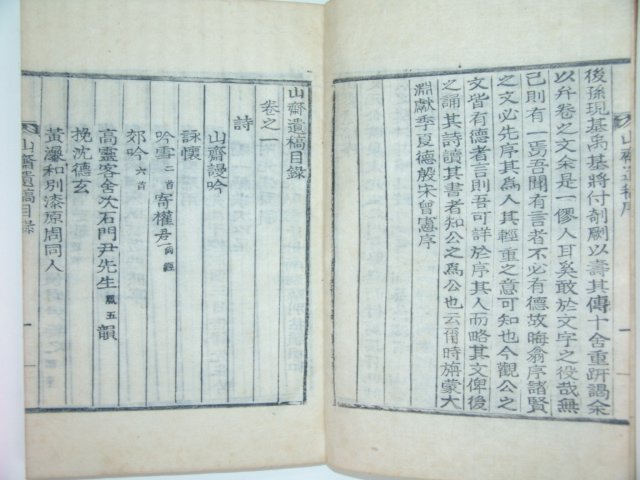 後孫現基禹基將付剞劂以壽其傳十舍重趼謁余
以弁卷之文余是一僇人耳奚敢於文字之役哉無
已則有一焉吾聞有言者不必有德故晦翁序諸賢
之文必先序其爲人其輕重之意可知也今觀公之
文皆有德者言則吾可詳於序其人而略其文俾後
之誦其詩讀其書者知公之爲公也云爾時旃蒙大
淵獻季夏德殷宋曾憲序
山齋遺稿序
一
山齋遺稿目錄
卷之一
詩
山齋謾吟
詠懷
吟雪二首 寄權君
郊吟六首
高靈客舍次石門尹先生鳳五韻
挽沈德玄
黃瀑和別漆原周同人
山齋遺稿目錄
一